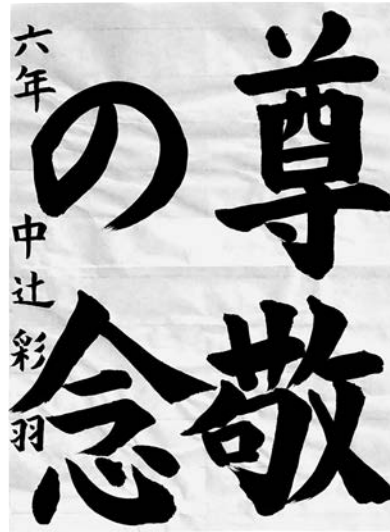 尊敬
の念
六年 中辻彩羽